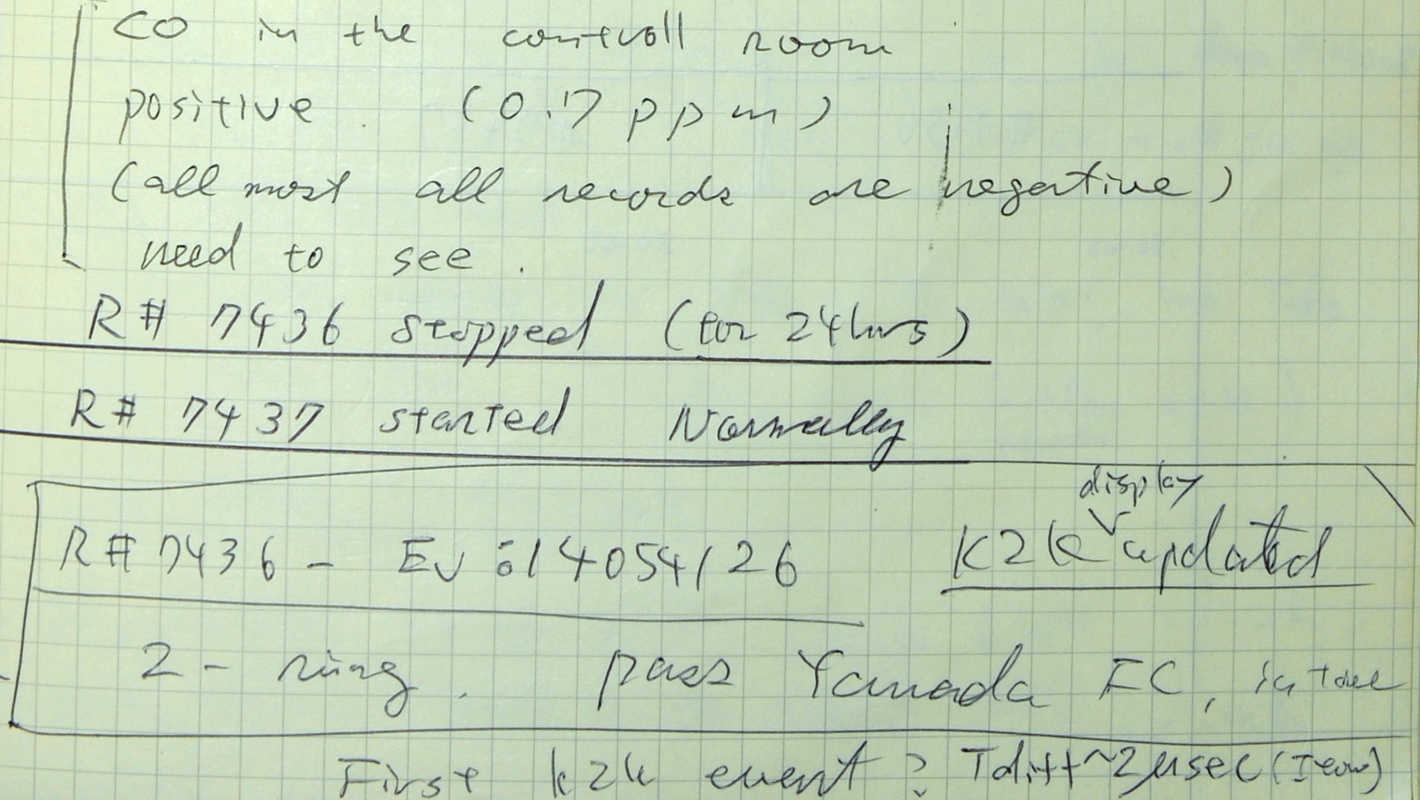 CO in the controll room
positive (0.7 ppm)
(all most all records are negative)
need to see.
R# 7436 stopped (for 24hrs)
R# 7437 started Normally
display
R# 7436 - Ev : 14054126 K2K updated
2-ring. pass Yamada FC, in time
First K2K event? Tdiff~2μsec